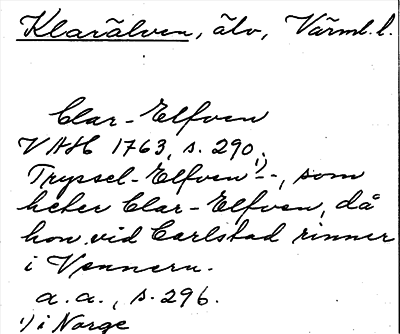 Klarälven, älv, Värml. l.
Clar-Elfven
VAH 1763, s. 290.
Tryssel-Elfven¹⁾--, som
heter Clar-Elfven, då
hon vid Carlstad rinner
i Vennern.
a.a., s. 296.
¹⁾ i Norge